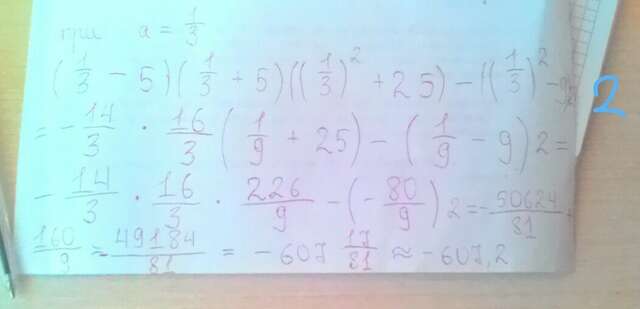 при a = 1/3
(1/3 - 5)(1/3 + 5)((1/3)² + 25) - ((1/3)² - 9)2
= - 14/3 · 16/3 (1/9 + 25) - (1/9 - 9) 2 =
- 14/3 · 16/3 · 226/9 - (- 80/9) 2 = - 50624/81 +
160/9 = 49184/81 = - 607 17/81 ≈ - 607,2